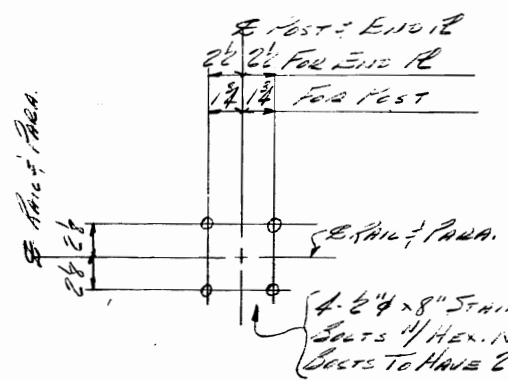 ℄ POST & END ℞
2½ 2½ FOR END ℞
1¾ 1¾ FOR POST
℄ RAIL & PARA.
2⅛ 2⅛
℄ RAIL & PARA.
4-½"φ x 8" STAI
BOLTS W/ HEX. N
BOLTS TO HAVE 2